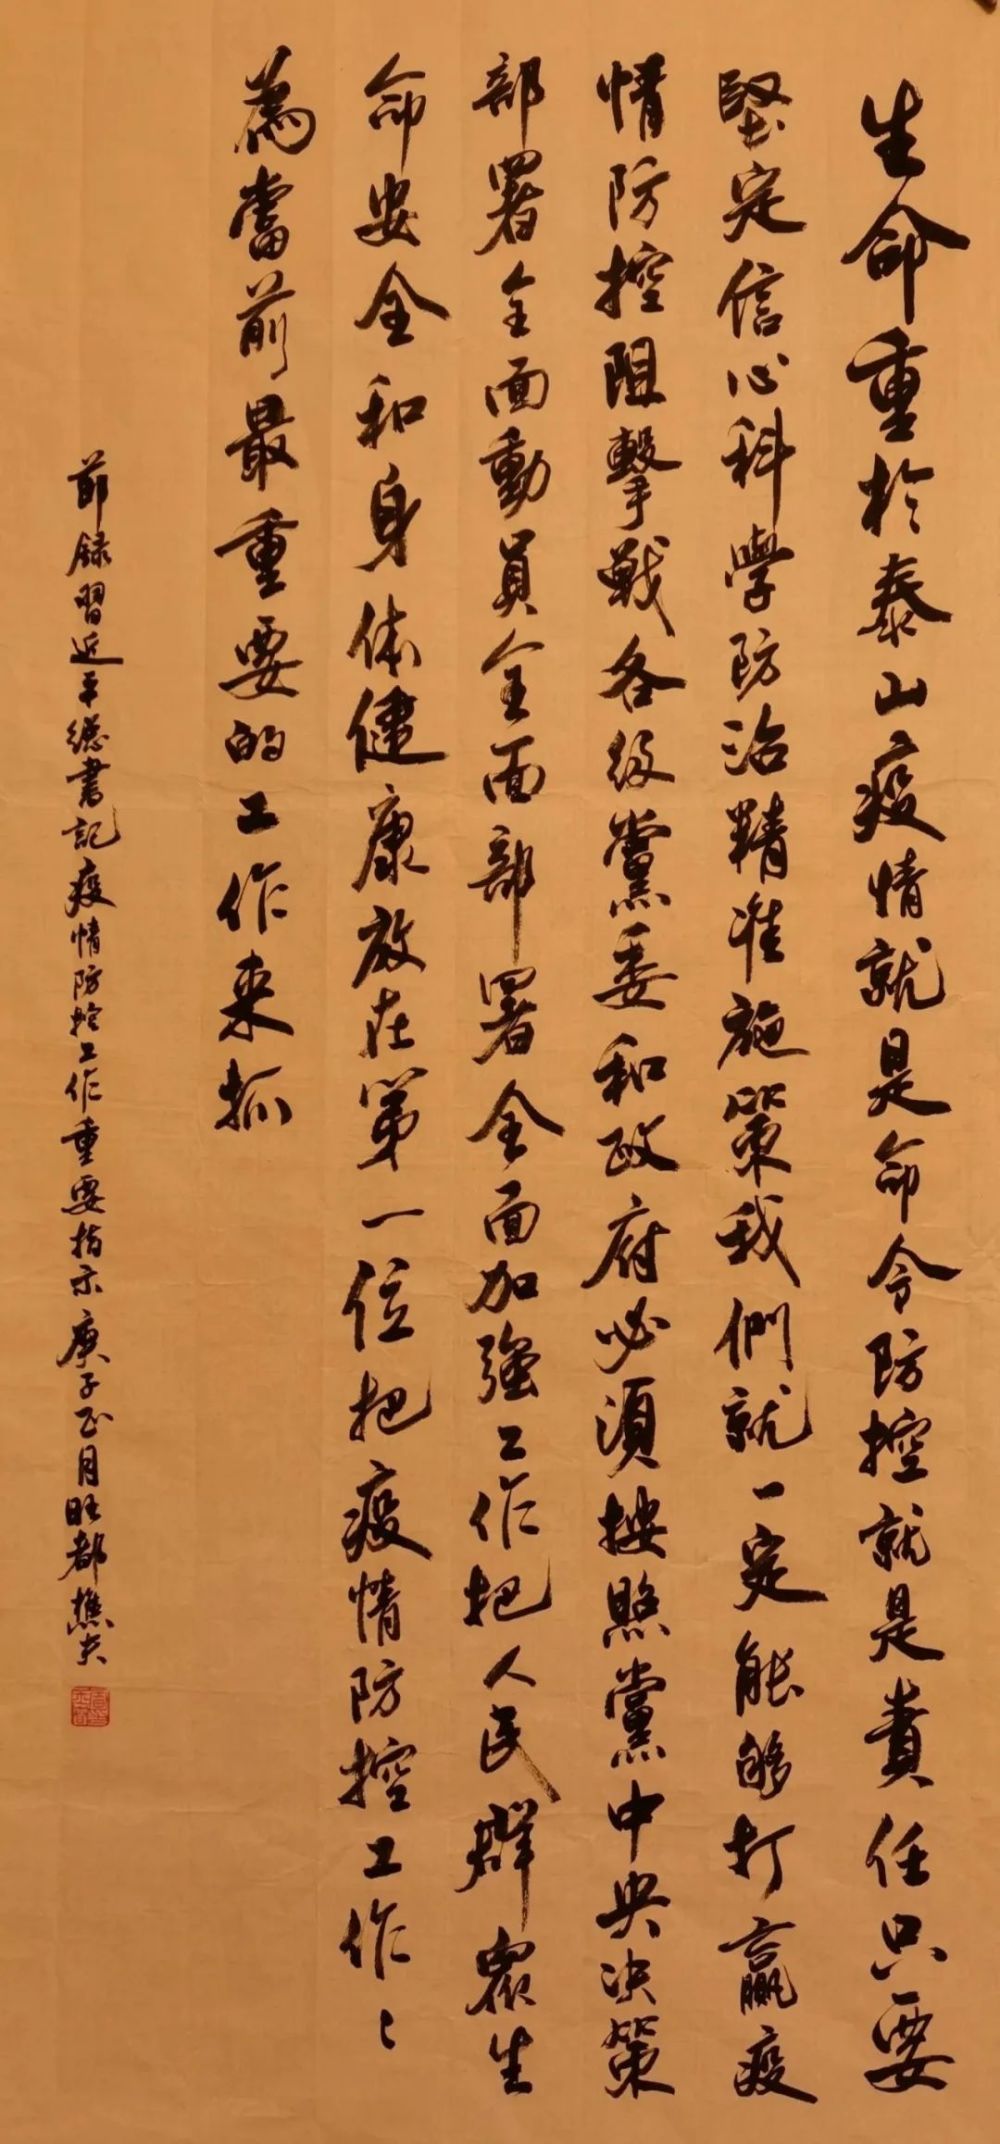 生命重於泰山疫情就是命令防控就是責任只要
堅定信心科學防治精准施策我們就一定能够打贏疫
情防控阻擊戰各級黨委和政府必須按照黨中央决策
部署全面動員全面部署全面加强工作把人民群眾生
命安全和身体健康放在第一位把疫情防控工作〻
為當前最重要的工作来抓
節録習近平總書記疫情防控工作重要指示庚子正月旺都樵夫